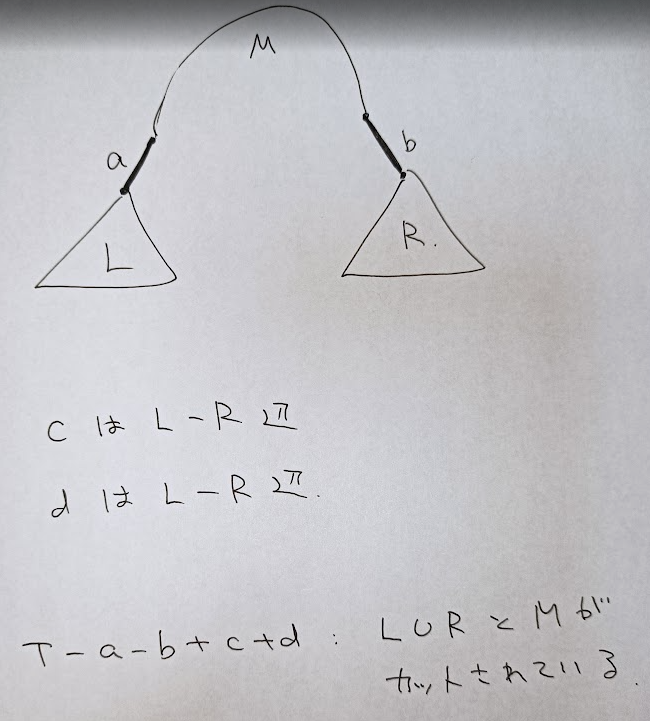 M
a
b
L
R.
c は L - R 辺
d は L - R 辺.
T - a - b + c + d : L ∪ R と M が
カットされている.